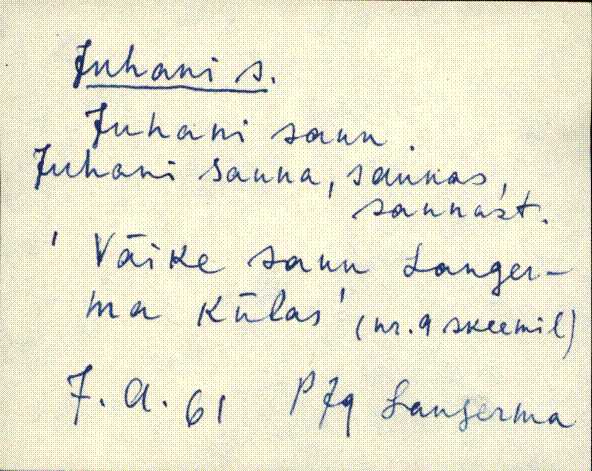 Juhani s.
Juhani saun.
Juhani sauna, saunas,
saunast.
' Väike saun Langer-
ma külas' (nr. 9 skeemil)
J. A. 61 PJg Langerma